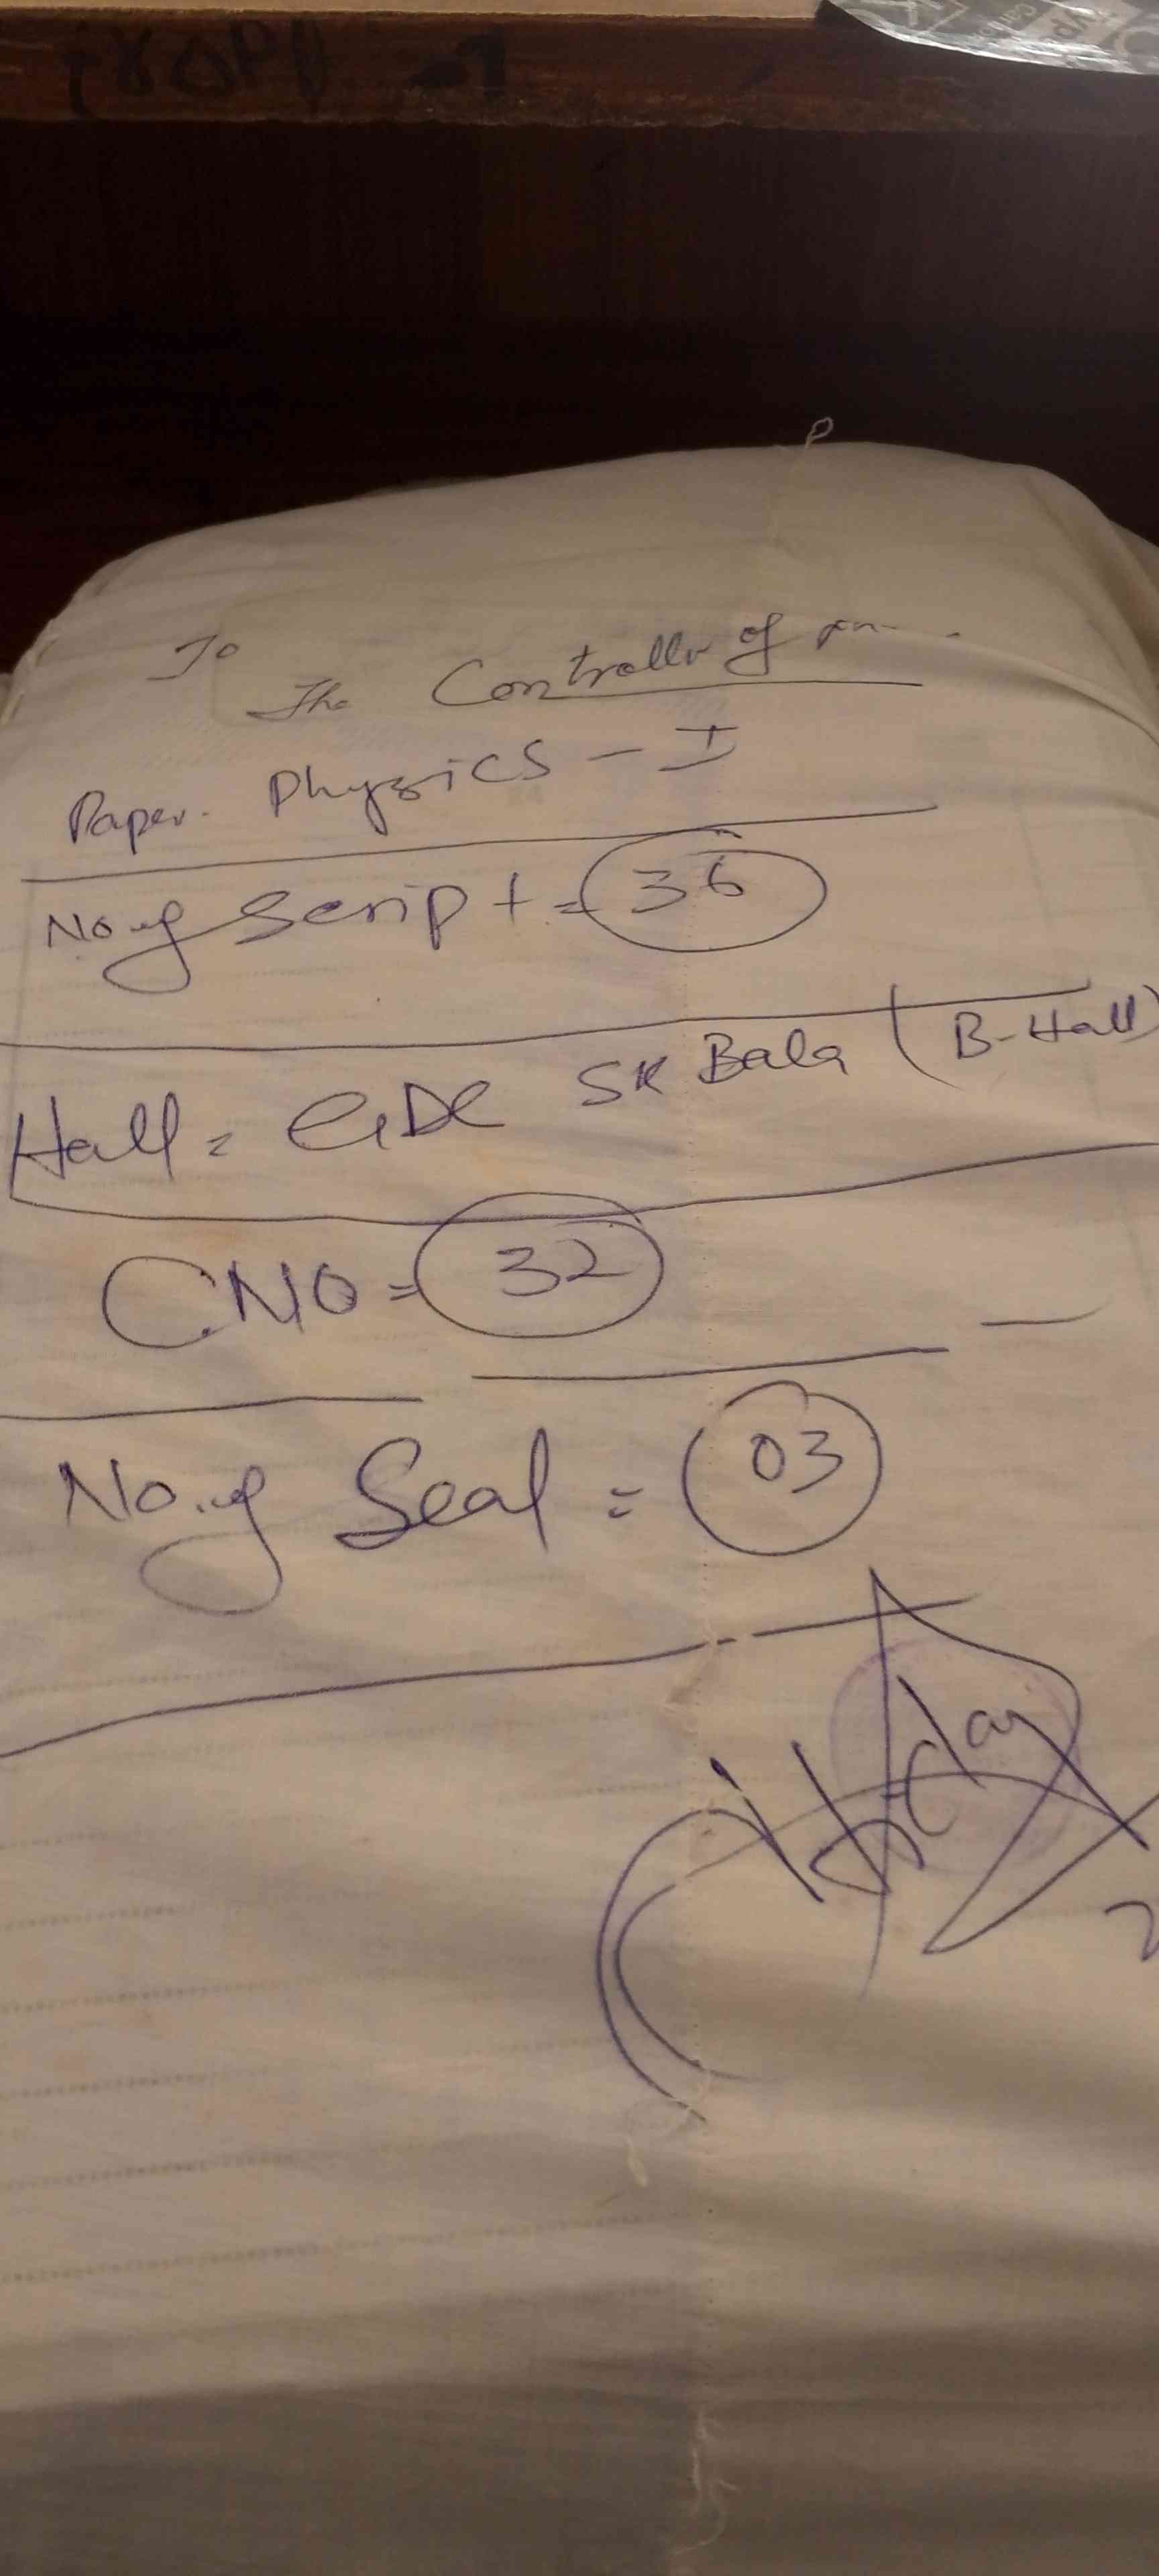 To
The Controller of
Paper. Physics - I
No of Script = 36
Hall = GDC SK Bala (B-Hall)
C.NO = 32
No. of Seal = 03